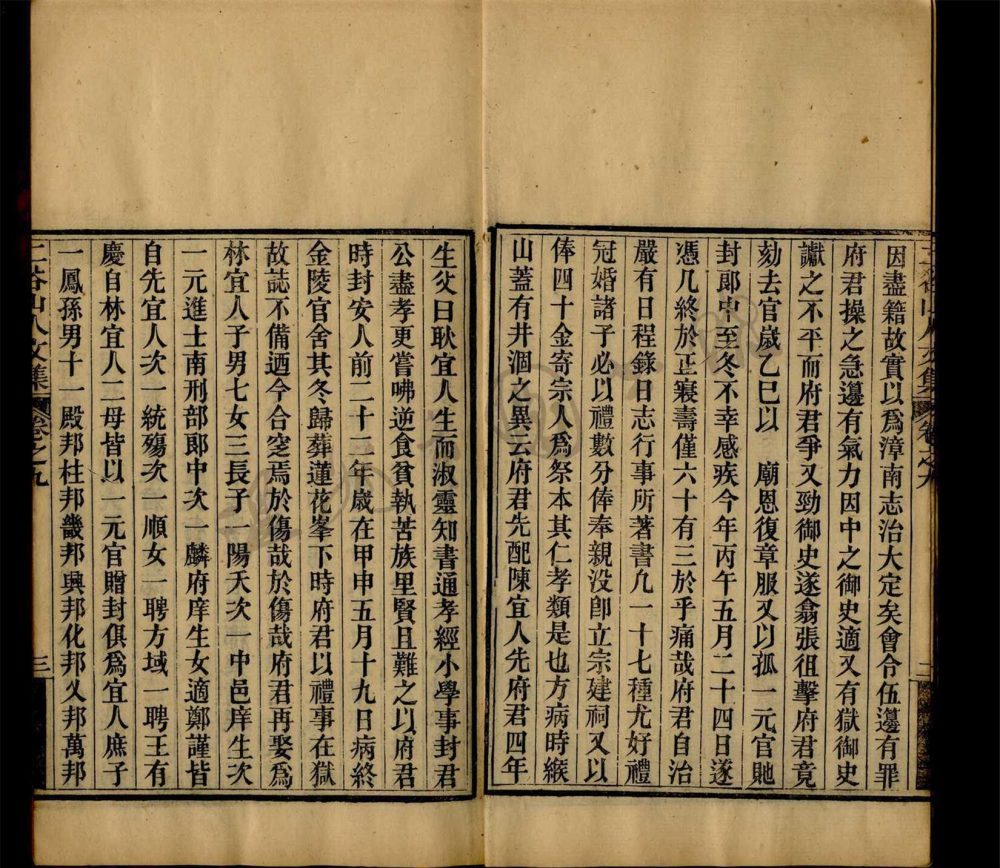 因盡籍故實以爲漳南志治大定矣會令伍邊有罪
府君操之急邊有氣力因中之御史適又有獄御史
讞之不平而府君爭又勁御史遂翕張徂擊府君竟
劾去官歲乙巳以　廟恩復章服又以孤一元官貤
封郎中至冬不幸感疾今年丙午五月二十四日遂
憑几終於正寢壽僅六十有三於乎痛哉府君自治
嚴有日程錄日志行事所著書九一十七種尤好禮
冠婚諸子必以禮數分俸奉親没卽立宗建祠又以
俸四十金寄宗人爲祭本其仁孝類是也方病時緱
山蓋有井涸之異云府君先配陳宜人先府君四年
生父曰耿宜人生而淑靈知書通孝經小學事封君
公盡孝更嘗咈逆食貧執苦族里賢且難之以府君
時封安人前二十二年歲在甲申五月十九日病終
金陵官舍其冬歸葬蓮花峯下時府君以禮事在獄
故誌不備迺今合窆焉於傷哉於傷哉府君再娶爲
林宜人子男七女三長子一陽夭次一中邑庠生次
一元進士南刑部郎中次一麟府庠生女適鄭謹皆
自先宜人次一統殤次一順女一聘方域一聘王有
慶自林宜人二母皆以一元官贈封俱爲宜人庶子
一鳳孫男十一殿邦柱邦畿邦興邦化邦乂邦萬邦
山人文集
卷之九
三